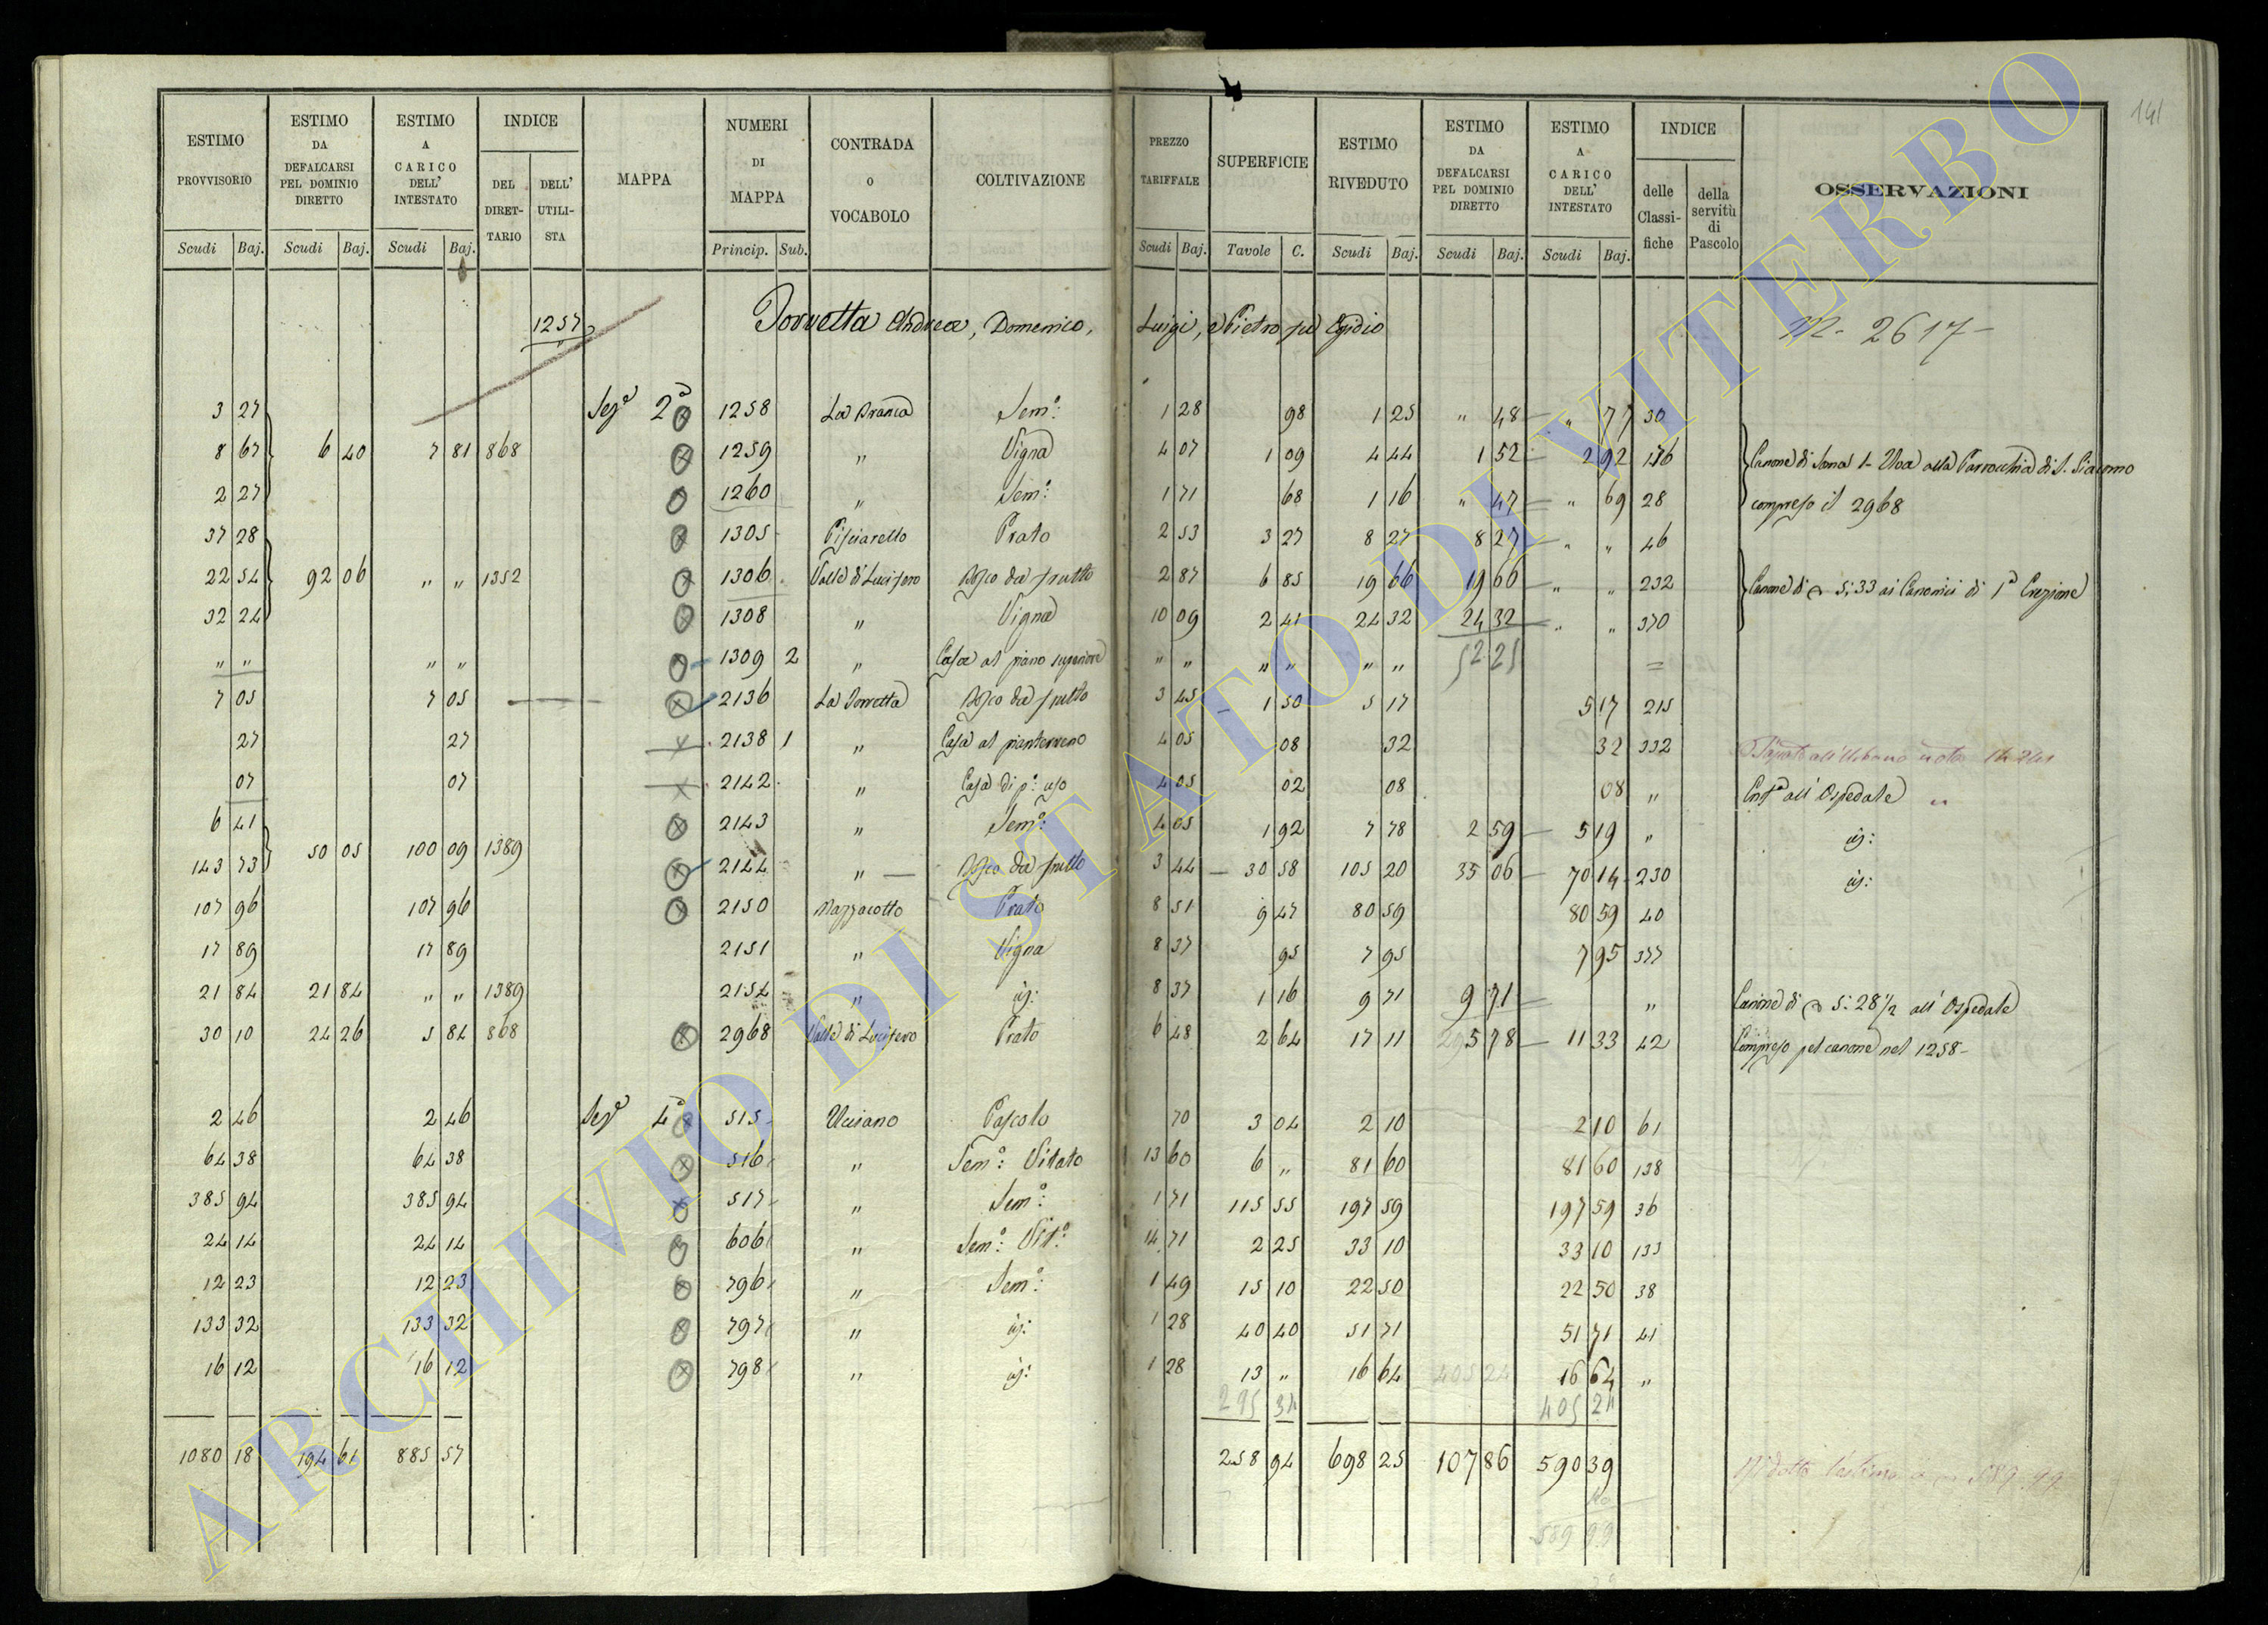 141
ESTIMO PROVVISORIO | ESTIMO DA DEFALCARSI PEL DOMINIO DIRETTO | ESTIMO A CARICO DELL' INTESTATO | INDICE | MAPPA | NUMERI DI MAPPA | CONTRADA O VOCABOLO | COLTIVAZIONE | PREZZO TARIFFALE | SUPERFICIE | ESTIMO RIVEDUTO | ESTIMO DA DEFALCARSI PEL DOMINIO DIRETTO | ESTIMO A CARICO DELL' INTESTATO | INDICE | OSSERVAZIONI
DEL DIRETTARIO | DELL' UTILISTA | delle Classifiche | della servitù di Pascolo
Scudi Baj. | Scudi Baj. | Scudi Baj. | Princip. Sub. | Scudi Baj. | Tavole C. | Scudi Baj. | Scudi Baj. | Scudi Baj.
1257 Andrea, Domenico, Luigi, e Pietro Egidio 2617
3 27 Sez.e 2a 1258 La Branca Sem.o: 1 28 98 1 25 " 48 " 77 30
8 67 6 40 7 81 868 1259 " Vigna 4 07 1 09 4 44 1 52 2 92 Canone di alla Parrocchia di S. Giacomo
2 27 1260 " Sem.o: 1 71 68 1 16 " 47 " 69 28 compreso il 2968
37 28 1305 Pisciarello Prato 2 53 3 27 8 27 8 27 " " 46
22 54 92 06 " " 1352 1306 Valle di Lucifero Bosco da frutto 2 87 6 85 19 66 19 66 " " 232 Canone di 5:33 ai Canonici di 1a Erezione
32 24 1308 " Vigna 10 09 2 41 24 32 24 32 " " 370
" " " " 1309 2 " Casa al piano superiore " " " " " " 52 25 =
7 05 7 05 2136 La Torretta Bosco da frutto 3 45 1 50 5 17 5 17 215
27 27 2138 1 " Casa al pianterreno 4 05 08 32 32 332
07 07 2142 " Casa di p.o: uso 4 05 02 08 08 " all' Ospedale "
6 41 2143 " Sem.o: 4 05 1 92 7 78 2 59 5 19 "
143 73 50 05 100 09 1389 2144 " Bosco da frutto 3 44 30 58 105 20 35 06 70 14 230
107 96 107 96 2150 Mazzacotto Prato 8 51 9 47 80 59 80 59 40
17 89 17 89 2151 " Vigna 8 37 95 7 95 7 95 377
21 84 21 84 " " 1389 2154 " 8 37 1 16 9 71 9 71 " Canone di 5:28½ all' Ospedale
30 10 24 26 5 84 868 2968 Valle di Lucifero Prato 6 48 2 64 17 11 5 78 11 33 42 Compreso pel canone nel 1258
2 46 2 46 Sez.e 4a 515 Ucciano Pascolo 70 3 04 2 10 2 10 61
64 38 64 38 516 " Sem.o: Vitato 13 60 6 " 81 60 81 60 138
385 94 385 94 517 " Sem.o: 1 71 115 55 197 59 197 59 36
24 14 24 14 606 " Sem.o: Vit.o: 14 71 2 25 33 10 33 10 133
12 23 12 23 796 " Sem.o: 1 49 15 10 22 50 22 50 38
133 32 133 32 797 " 1 28 40 40 51 71 51 71 41
16 12 16 12 798 " 1 28 13 " 16 64 405 24 16 64 "
295 34 405 24
1080 18 194 61 885 57 258 94 698 25 107 86 590 39
589 99
ARCHIVIO DI STATO DI VITERBO